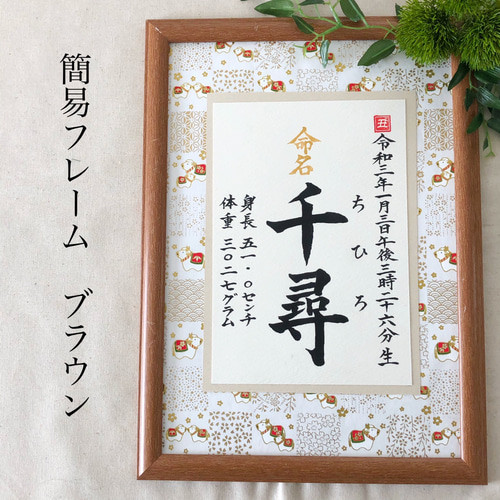 簡易フレーム ブラウン
丑
令和三年一月三日午後三時二十六分 生
ちひろ
命名
千尋
身長 五一・〇センチ
体重 三〇二七グラム